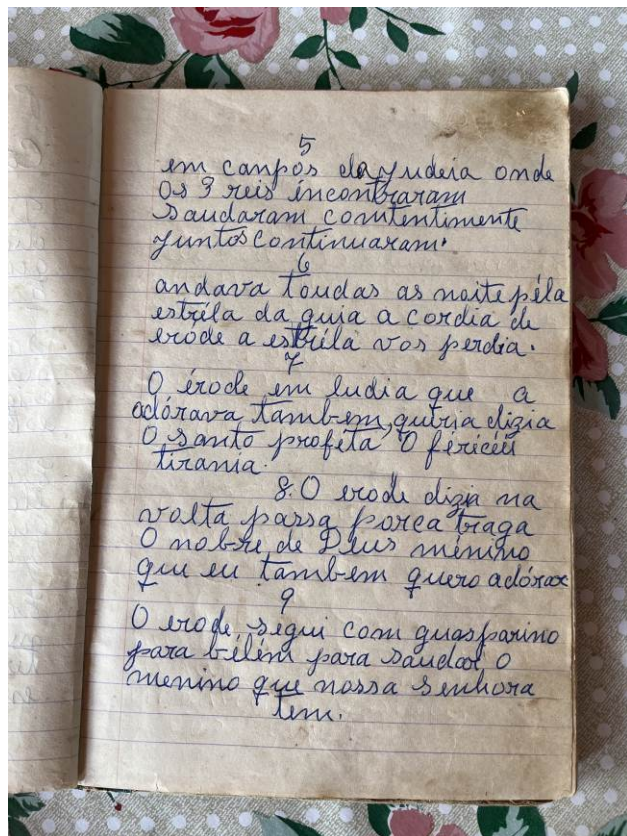 5
em canpós da yudeia onde
Os 3 reis incontraram
Saudaram comtentimente
yuntos continuaram.
6
andava toudas as noite péla
estréla da guia a cordia de
eróde a estréla vos perdia.
7
O érode em ludia que a
adórava tambem, quiria dizia
O santo proféta O
tirania.
8. O erode dizia na
volta passa porca traga
O nobre de Deus menino
que eu tambem quero adórar
9
O erode segui com guasparino
para bélém para saudar o
menino que nossa Senhora
tem.